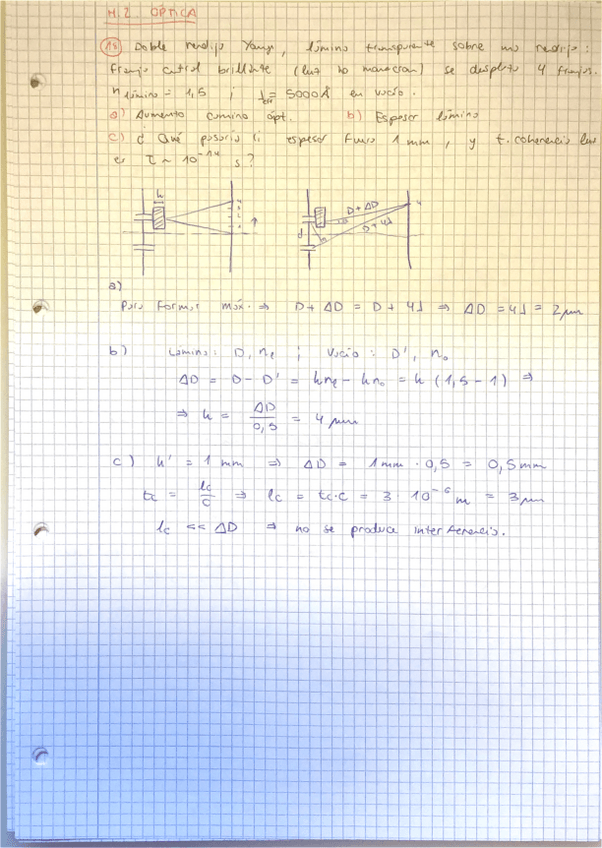 H.2 ÓPTICA
18 Doble rendija Young, lámina transparente sobre una rendija:
franja central brillante (luz no monocrom) se desplaza 4 franjas.
n lámina = 1,5 ; λ = 5000 Å en vacío.
a) Aumento camino ópt. b) Espesor lámina
c) ¿Qué pasaría si espesor fuera 1 mm, y t. coherencia luz
es τ ~ 10⁻¹⁴ s?
h
D + ΔD
4
D + 4λ
d
a)
Para formar máx. ⇒ D + ΔD = D + 4λ ⇒ ΔD = 4λ = 2 μm
b) Lámina: D, nₑ ; Vacío: D', n₀
ΔD = D - D' = hnₑ - hn₀ = h (1,5 - 1) ⇒
⇒ h = ΔD / 0,5 = 4 μm
c) h' = 1 mm ⇒ ΔD = 1 mm · 0,5 = 0,5 mm
tc = lc / c ⇒ lc = tc·c = 3 · 10⁻⁶ m = 3 μm
lc << ΔD ⇒ no se produce interferencia.